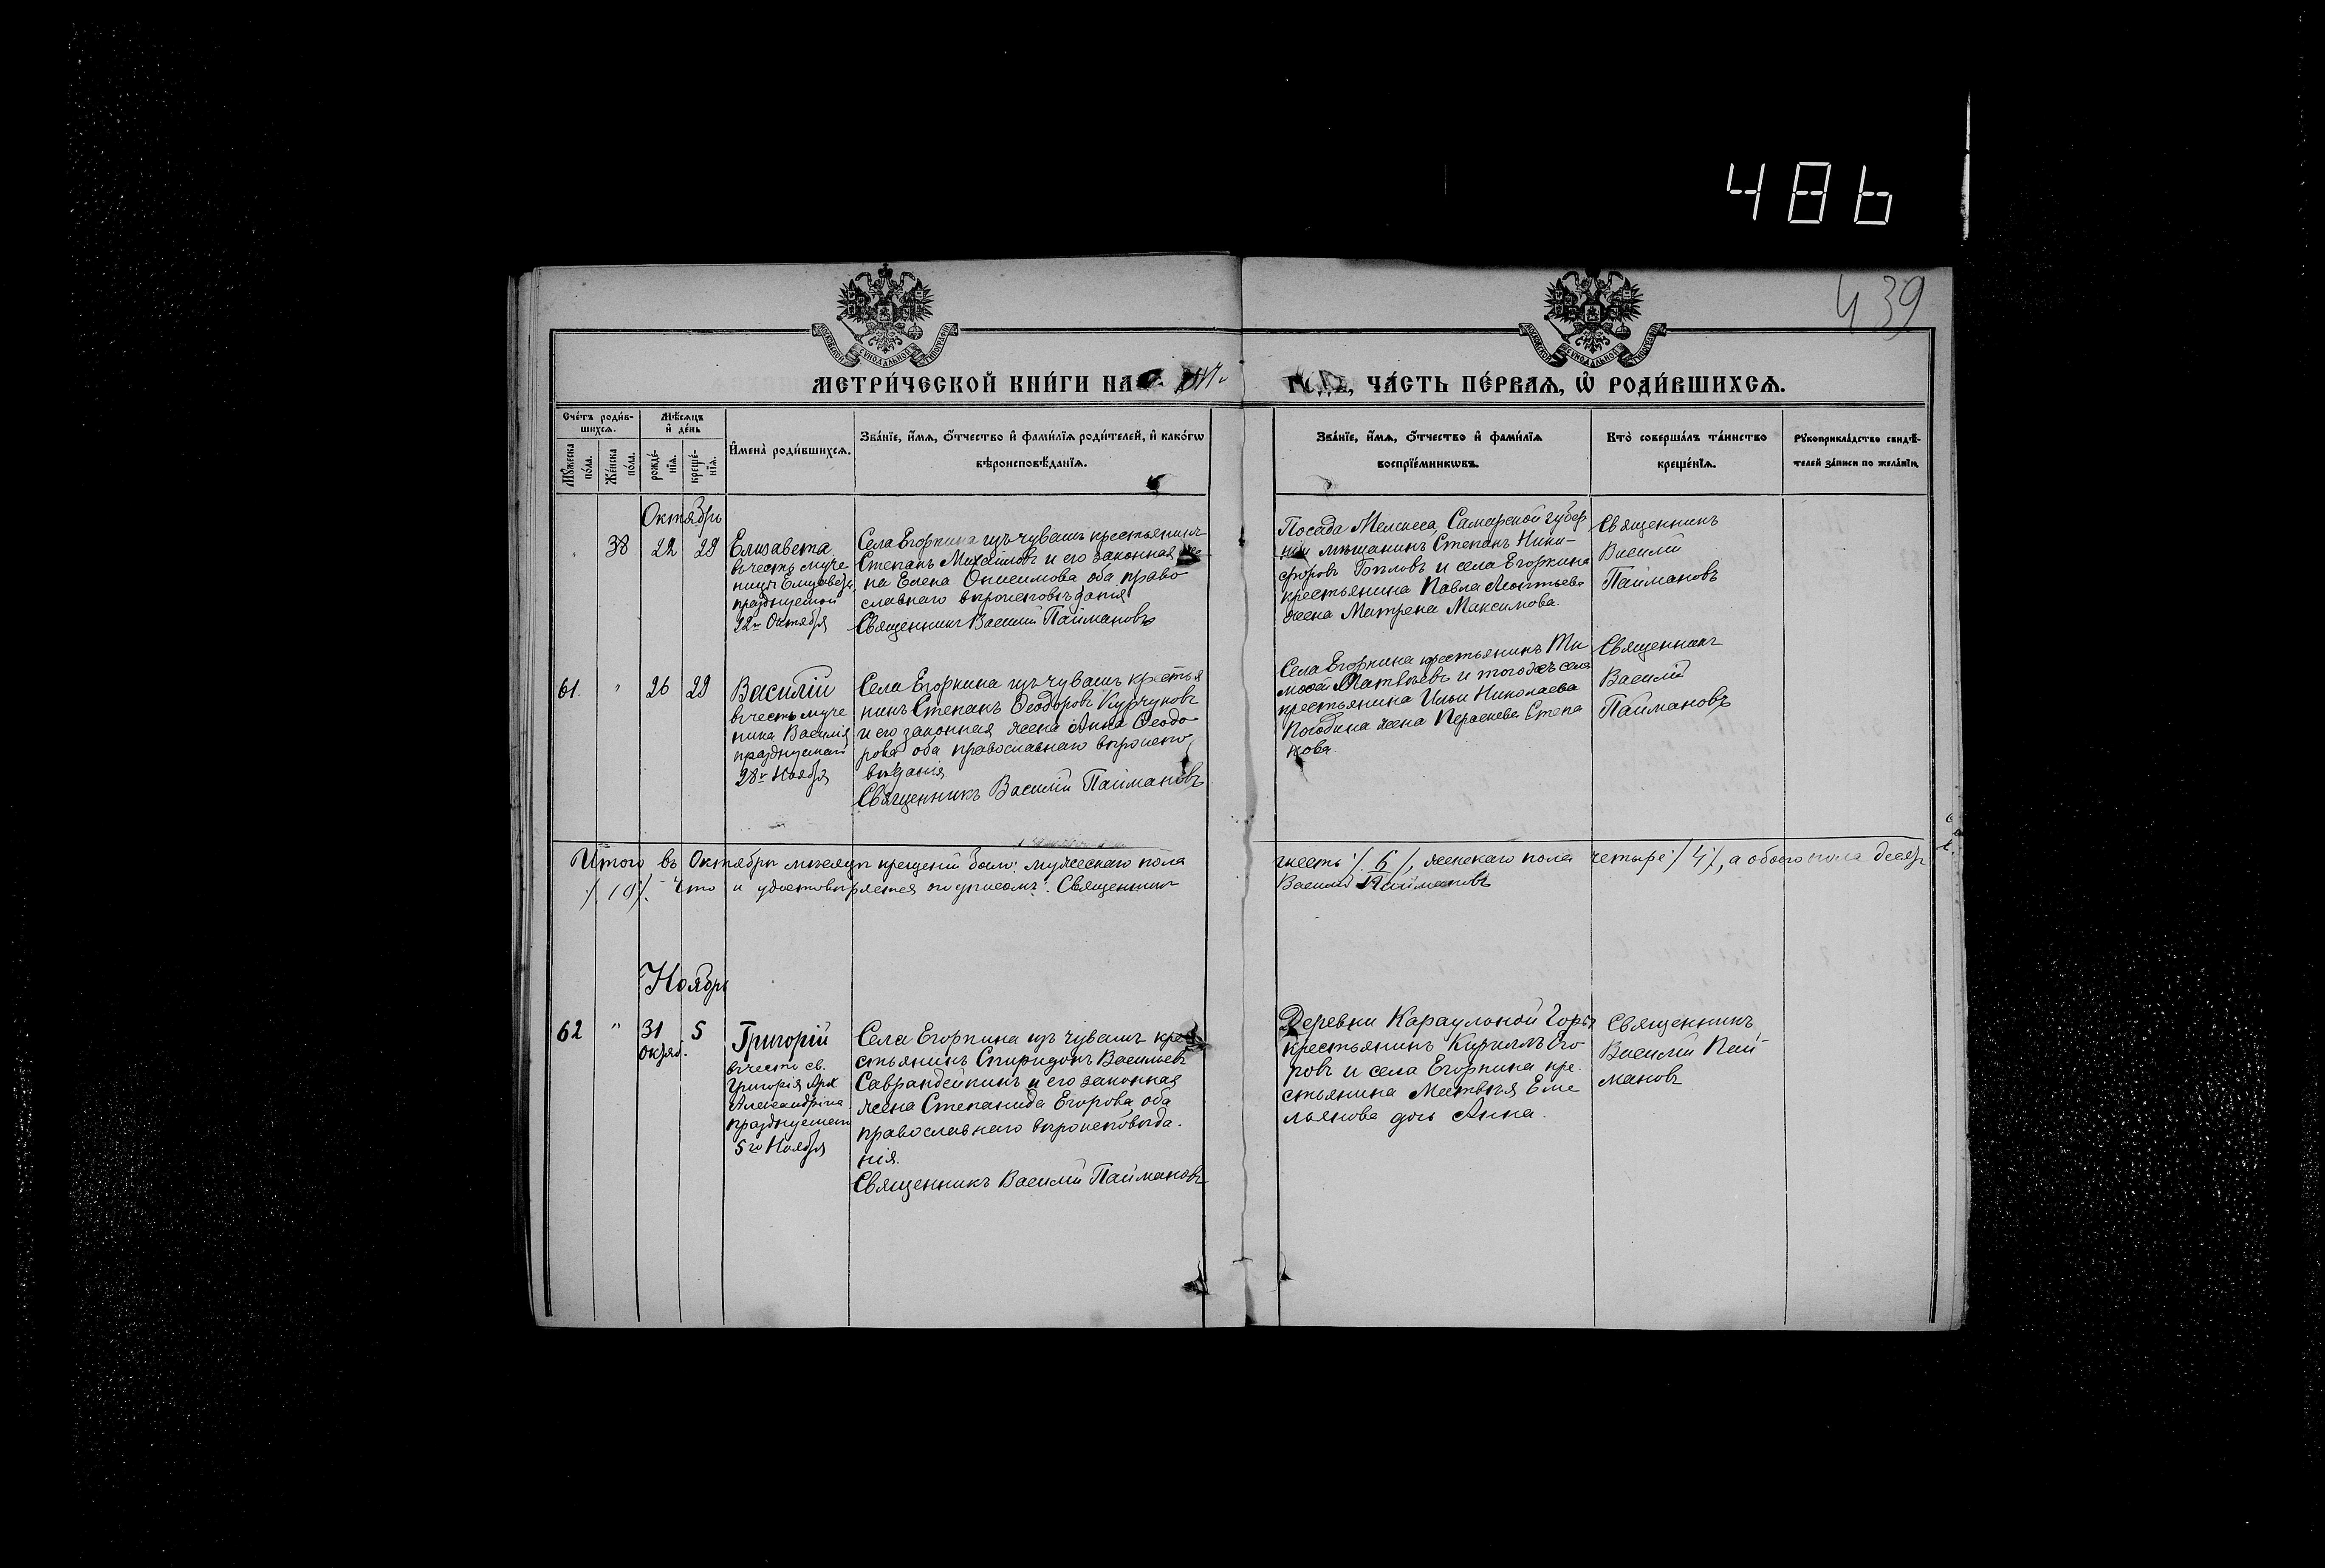 486
439
МОСКОВСКОЙ СѴНОДАЛЬНОЙ ТИПОГРАФІИ
МОСКОВСКОЙ СѴНОДАЛЬНОЙ ТИПОГРАФІИ
МЕТРИ́ЧЕСКОЙ КНИ́ГИ НА
ГОДЪ, ЧА́СТЬ ПЕ́РВАѦ, Ѽ РОДИ́ВШИХСѦ.
Сче́тъ роди́в-
шихсѧ.
Мѣ́сѧцъ
и҆ де́нь
Мꙋ́жеска
по́ла.
Же́нска
по́ла.
рожде́-
нїѧ.
креще́-
нїѧ.
И҆мена̀ роди́вшихсѧ.
Зва́нїе, и҆́мѧ, ѻ҆́тчество и҆ фами́лїѧ роди́телей, и҆ како́гѡ
вѣроисповѣ́данїѧ.
Зва́нїе, и҆́мѧ, ѻ҆́тчество и҆ фами́лїѧ
воспрїе́мникѡвъ.
Кто̀ соверша́лъ та́инство
креще́нїѧ.
Рꙋкоприкла́дство свидѣ́-
телей за́писи по жела́нїю.
Октябрь
" 38 22 29
Елизавета
въ честь муче
ницы Елизаветы
празднуемой
22го Октября
Села Егоркина изъ чувашъ крестьянинъ
Степанъ Михайловъ и его законная же-
на Елена Онисимова оба право
славнаго вѣроисповѣданія
Священникъ Василій Паймановъ
Посада Мелекеса, Самарской губер
ніи мѣщанинъ Степанъ Ники-
форовъ Бѣловъ и села Егоркина
крестьянина Павла Леонтьева
жена Матрена Максимова.
Священникъ
Василій
Паймановъ
61. " 26 29
Василій
въ честь муче
ника Василія
празднуемаго
28го Ноября
Села Егоркина изъ чувашъ крестья
нинъ Степанъ Ѳеодоровъ Курчуковъ
и его законная жена Анна Ѳеодо-
рова оба православнаго вѣроиспо
вѣданія
Священникъ Василій Паймановъ
Села Егоркина крестьянинъ Ти
моѳей Матвѣевъ и тогожъ села
крестьянина Ильи Николаева
Погодина жена Параскева Степа
нова.
Священникъ
Василій
Паймановъ
Итого въ Октябрѣ мѣсяцѣ крещеній было: мужескаго пола
шесть /6/, женскаго пола четыре /4/, а обоего пола десять
/10/. Что и удостовѣряется подписомъ: Священникъ
Василій Паймановъ
Ноябрь
62 " 31 5
Октяб.
Григорій
въ честь св.
Григорія Арх
Александріна
празднуемаго
5го Ноября
Села Егоркина изъ чувашъ кре
стьянинъ Спиридонъ Васильевъ
Саврандейкинъ и его законная
жена Степанида Егорова, оба
православнаго вѣроисповѣда.
нія.
Священникъ Василій Паймановъ
Деревни Караульной Горы
крестьянинъ Кириллъ Его
ровъ и села Егоркина кре.
стьянина Матвѣя Еме
льянова дочь Анна.
Священникъ
Василій Пай-
мановъ